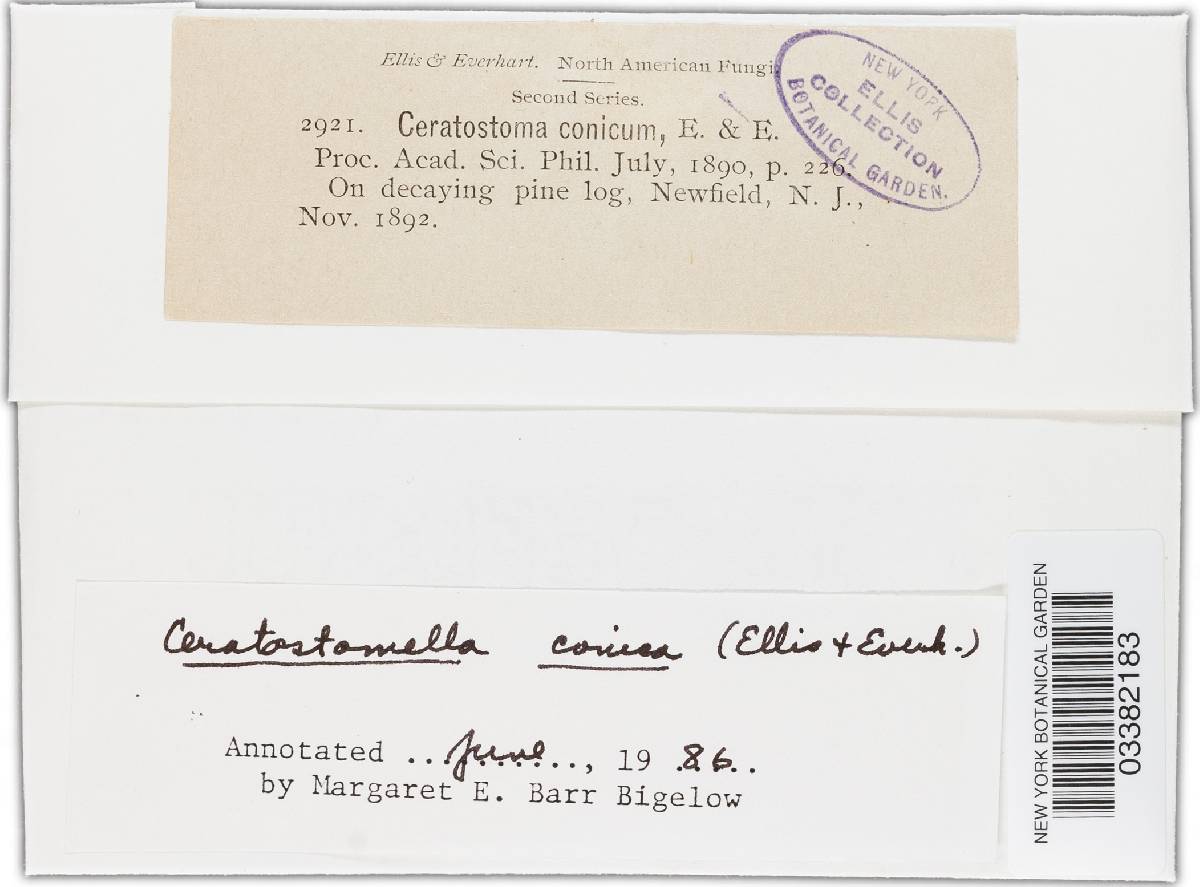 Ellis & Everhart. North American Fungi
Second Series.
2921. Ceratostoma conicum, E. & E.
Proc. Acad. Sci. Phil. July, 1890, p. 226.
On decaying pine log, Newfield, N. J.,
Nov. 1892.
NEW YORK
ELLIS
COLLECTION
BOTANICAL GARDEN.
Ceratostomella conica (Ellis & Everh.)
Annotated ...June..., 19 .86..
by Margaret E. Barr Bigelow
NEW YORK BOTANICAL GARDEN
03382183